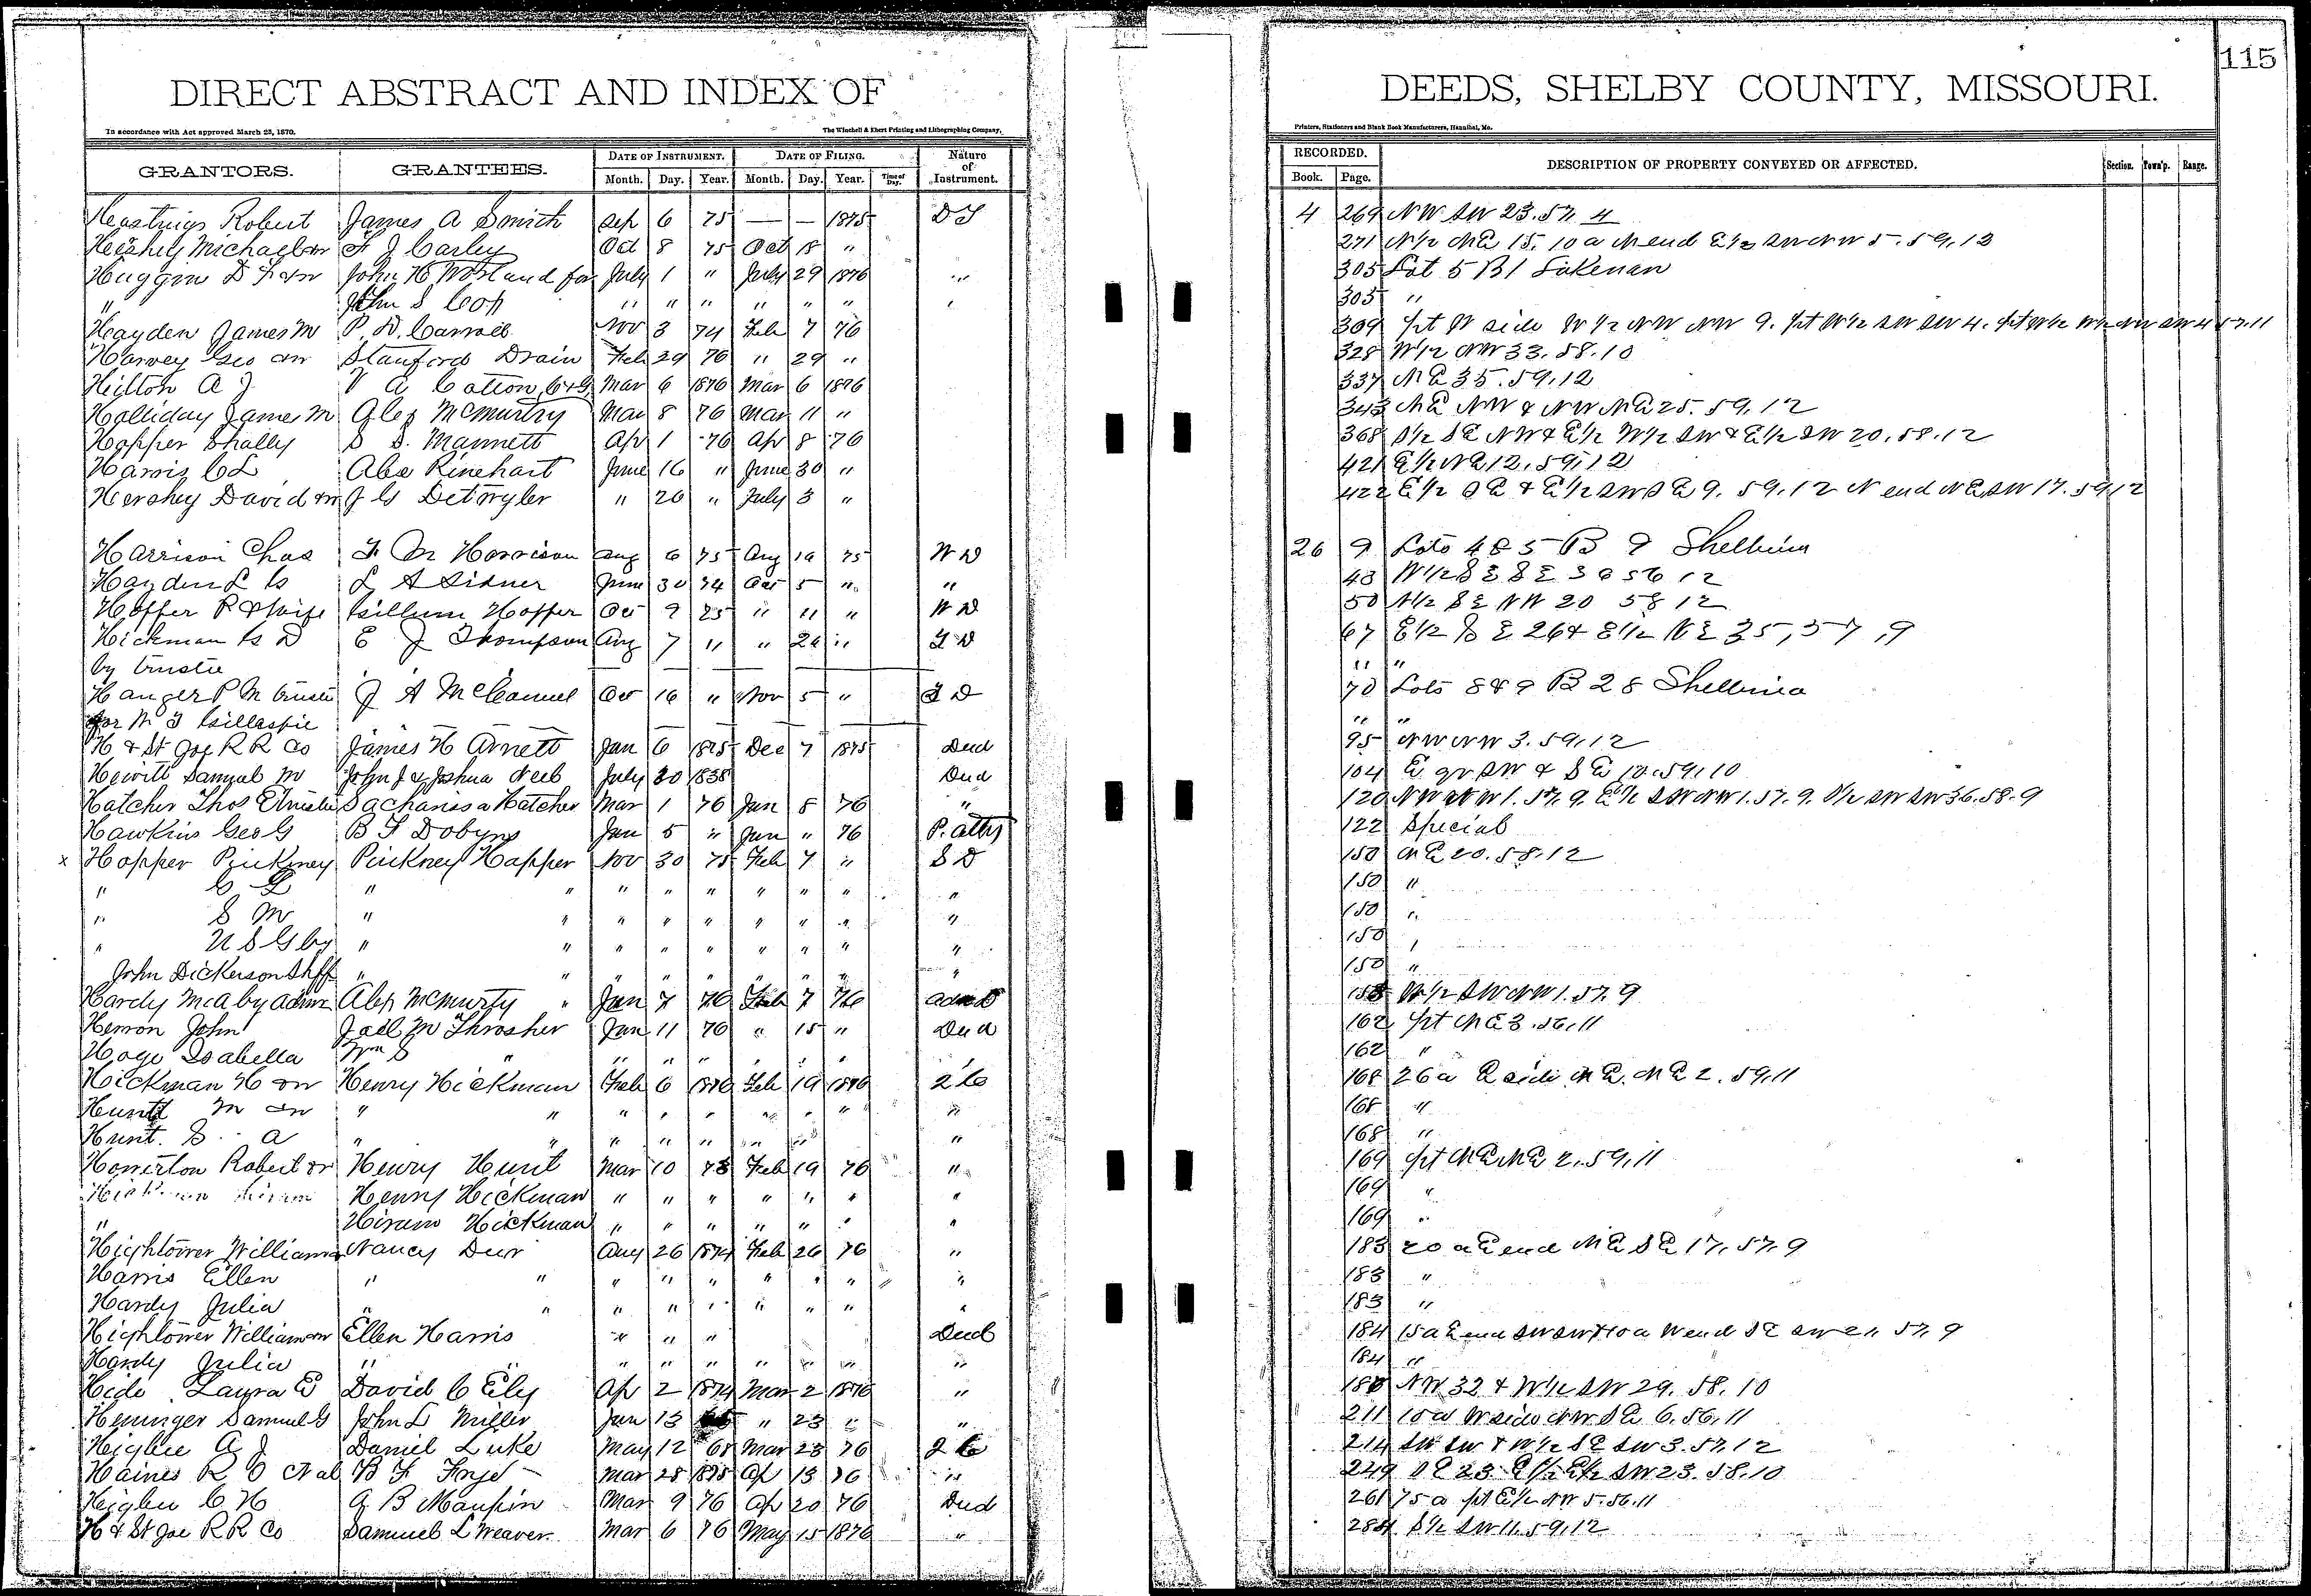 115
DIRECT ABSTRACT AND INDEX OF DEEDS, SHELBY COUNTY, MISSOURI.
In accordance with Act approved March 23, 1870. The Winchell & Ebert Printing and Lithographing Company, Printers, Stationers and Blank Book Manufacturers, Hannibal, Mo.
GRANTORS. GRANTEES. DATE OF INSTRUMENT. DATE OF FILING. Nature of Instrument. RECORDED. DESCRIPTION OF PROPERTY CONVEYED OR AFFECTED. Section. Town'p. Range.
Month. Day. Year. Month. Day. Year. Time of Day. Book. Page.
Hastings Robert James A Smith Sep 6 75 — — 1875 D T 4 269 NW SW 23.57. 4
Hershey Michael &w F J Carley Oct 8 75 Oct 18 " 271 N½ NE 15. 10 a N end E½ SW NW 5.59.12
Huggin D F &w John H Worland for July 1 " July 29 1876 " 305 Lot 5 B1 Lakenan
" John S Cop " " " " " " " 305 "
Hayden James M P. D. Carroll Nov 3 74 Feb 7 76 309 pt W side W½ NW NW 9. pt W½ SW SW 4. pt W½ W½ NW SW 4 57.11
Harvey Geo &w Stanford Drain Feb 29 76 " 29 " 328 W½ NW 33.58.10
Hilton A J V A Catton, C&G Mar 6 1876 Mar 6 1876 337 NE 35.59.12
Holliday James M Alex McMurtry Mar 8 76 Mar 11 " 343 NE NW & NW NE 25.59.12
Hopper Shally S S. Mannett Apr 1 76 Apr 8 76 368 S½ SE NW & E½ W½ SW & E½ SW 20.58.12
Harris C L Abe Rinehart June 16 " June 30 " 421 E½ NE 12.59.12
Hershey David &w J G Detwyler " 26 " July 3 " 422 E½ SE & E½ SW SE 9.59.12 N end NE SW 17.59.12
Harrison Chas F M Harrison Aug 6 75 Aug 19 75 W D 26 9 Lots 4 & 5 B 9 Shelbina
Hayden L G L A Sidner June 30 74 Oct 5 " " 43 W½ SE SE 36 56 12
Hopper P & Wife Gillum Hopper Oct 9 75 " 11 " W D 50 N½ SE NW 20 58 12
Hickman G D E J Thompson Aug 7 " " 26 " T D 67 E½ SE 26 & E½ NE 35, 57, 9
by trustee " "
Hanger P M trustee J A McCamel Oct 16 " Nov 5 " T D 70 Lots 8 & 9 B 28 Shelbina
for W T Gillaspie " "
H & St Joe R R Co James H Arnett Jan 6 1875 Dec 7 1875 Deed 95 NW NW 3.59.12
Hewitt Samuel M John J & Joshua Neeb July 30 1838 Deed 104 E qr SW & SE 10.59.10
Hatcher Thos E trustee Sacharissa Hatcher Mar 1 76 Jan 8 76 " 120 NW NW 1.57.9. E½ SW NW 1.57.9. S½ SW SW 36.58.9
Hawkins Geo G B F Dobyns Jan 5 " Jan " 76 P. Atty 122 Special
x Hopper Pinkney Pinkney Hopper Nov 30 75 Feb 7 " S D 150 NE 20.58.12
" C L " " " " " " " " " 150 "
" S M " " " " " " " " " 150 "
" U S G by " " " " " " " " " 150 "
John Dickerson Shff " " " " " " " " " 150 "
Hardy McA by admr Alex McMurty " Jan 7 76 Feb 7 76 Adm D 158 W½ SW NW 1.57.9
Herron John Joel M Throsher Jan 11 76 " 15 " Deed 162 pt NE 3.56.11
Hoge Isabella Wm S " " " " " " " 162 "
Hickman H &w Henry Hickman Feb 6 1876 Feb 19 1876 2 C 168 26 a E side NE. NE 2.59.11
Hunt M &w " " " " " " " " " 168 "
Hunt. S. A " " " " " " " " 168 "
Howerton Robert &w Henry Hunt Mar 10 73 Feb 19 76 " 169 pt NE NE 2.59.11
Hickman Hiram Henry Hickman " " " " " " " 169 "
" Hiram Hickman " " " " " " " 169 "
Hightower William &w Nancy Duir Aug 26 1874 Feb 26 76 " 183 20 a E end NE SE 17.57.9
Harris Ellen " " " " " " " " " 183 "
Hardy Julia " " " " " " " " " 183 "
Hightower William &w Ellen Harris " " " Deed 184 15 a E end SW SW & 10 a W end SE SW 21.57.9
Hardy Julia " " " " " " " " " 184 "
Hide Laura E David C Ely Ap 2 1874 Mar 2 1876 " NW 32 & W½ SW 29.58.10
Heninger Samuel G John L Miller Jan 13 " 23 " " 211 10 a W side NW SE 6.56.11
Higbee A J Daniel Luke May 12 68 Mar 23 76 2 C 214 SW SW & W½ SE SW 3.57.12
Haines R O et al B F Frye Mar 28 1875 Ap 13 76 " 249 SE 23 E½ E½ SW 23.58.10
Higbee C H A B Maupin Mar 9 76 Ap 20 76 Deed 261 75 a pt E½ NW 5.56.11
H & St Joe R R Co Samuel L Weaver Mar 6 76 May 15 1876 " 284 S½ SW 11.59.12